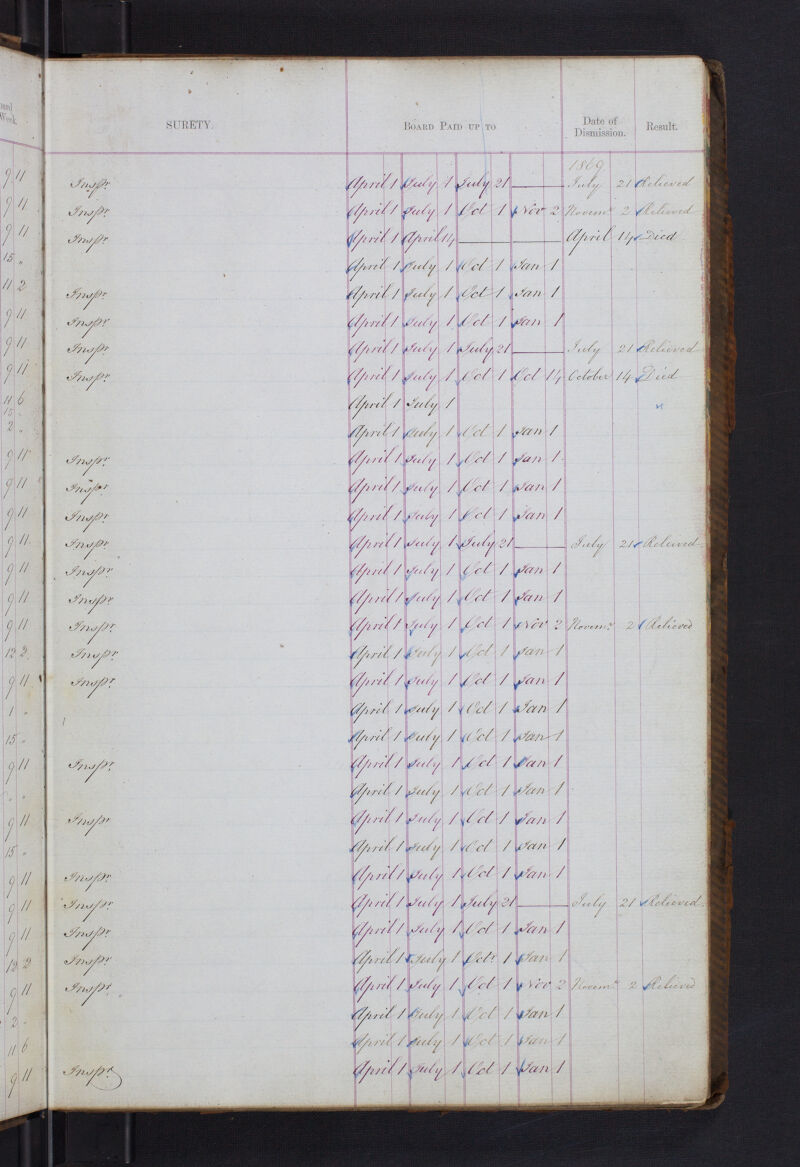 SURETY. BOARD PAID UP TO Date of Dismission. Result.
1869
9 11 Inspr. April 1 July 1 July 21 — July 21 Relieved
9 11 Inspr. April 1 July 1 Oct 1 Nov 2 Novemr. 2 Relieved
9 11 Inspr. April 1 April 14 — April 14 Died
15 " April 1 July 1 Oct 1 Jan 1
11 2 Inspr. April 1 July 1 Oct 1 Jan 1
9 11 Inspr. April 1 July 1 Oct 1 Jan 1
9 11 Inspr. April 1 July 1 July 21 — July 21 Relieved
9 11 Inspr. April 1 July 1 Oct 1 Oct 14 October 14 Died
11 6 April 1 July 1 "
15 "
2 " April 1 July 1 Oct 1 Jan 1
9 11 Inspr. April 1 July 1 Oct 1 Jan 1
9 11 Inspr. April 1 July 1 Oct 1 Jan 1
9 11 Inspr. April 1 July 1 Oct 1 Jan 1
9 11 Inspr. April 1 July 1 July 21 — July 21 Relieved
9 11 Inspr. April 1 July 1 Oct 1 Jan 1
9 11 Inspr. April 1 July 1 Oct 1 Jan 1
9 11 Inspr. April 1 July 1 Oct 1 Nov 2 Novemr. 2 Relieved
12 2 Inspr. April 1 July 1 Oct 1 Jan 1
9 11 Inspr. April 1 July 1 Oct 1 Jan 1
1 " April 1 July 1 Oct 1 Jan 1
15 " April 1 July 1 Oct 1 Jan 1
9 11 Inspr. April 1 July 1 Oct 1 Jan 1
" " April 1 July 1 Oct 1 Jan 1
9 11 Inspr. April 1 July 1 Oct 1 Jan 1
15 " April 1 July 1 Oct 1 Jan 1
9 11 Inspr. April 1 July 1 Oct 1 Jan 1
9 11 Inspr. April 1 July 1 July 21 — July 21 Relieved
9 11 Inspr. April 1 July 1 Oct 1 Jan 1
2 Inspr. April 1 July 1 Octr. 1 Jan 1
9 11 Inspr. April 1 July 1 Oct 1 Nov 2 Novemr. 2 Relieved
2 " April 1 July 1 Oct 1 Jan 1
11 6 April 1 July 1 Oct 1 Jan 1
9 11 Inspr. April 1 July 1 Oct 1 Jan 1